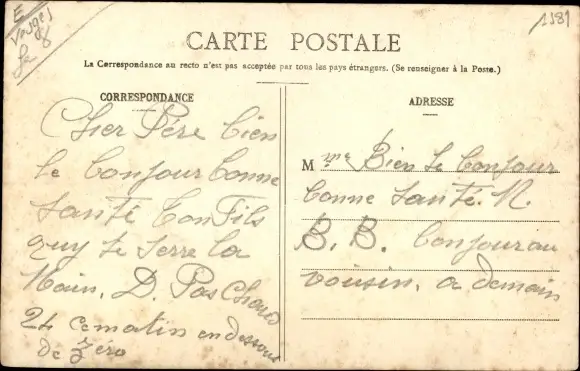 E
Vosges
1981
CARTE POSTALE
La Correspondance au recto n'est pas acceptée par tous les pays étrangers. (Se renseigner à la Poste.)
CORRESPONDANCE
Cher Pére bien
le bonjour bonne
santé ton Fils
quy te serre la
Main. D. Pas Chaud
24 ce matin en dessous
de zéro
ADRESSE
Mme Bien le bonjour
bonne santé. N.
B. B. bonjour au
voisin, a demain